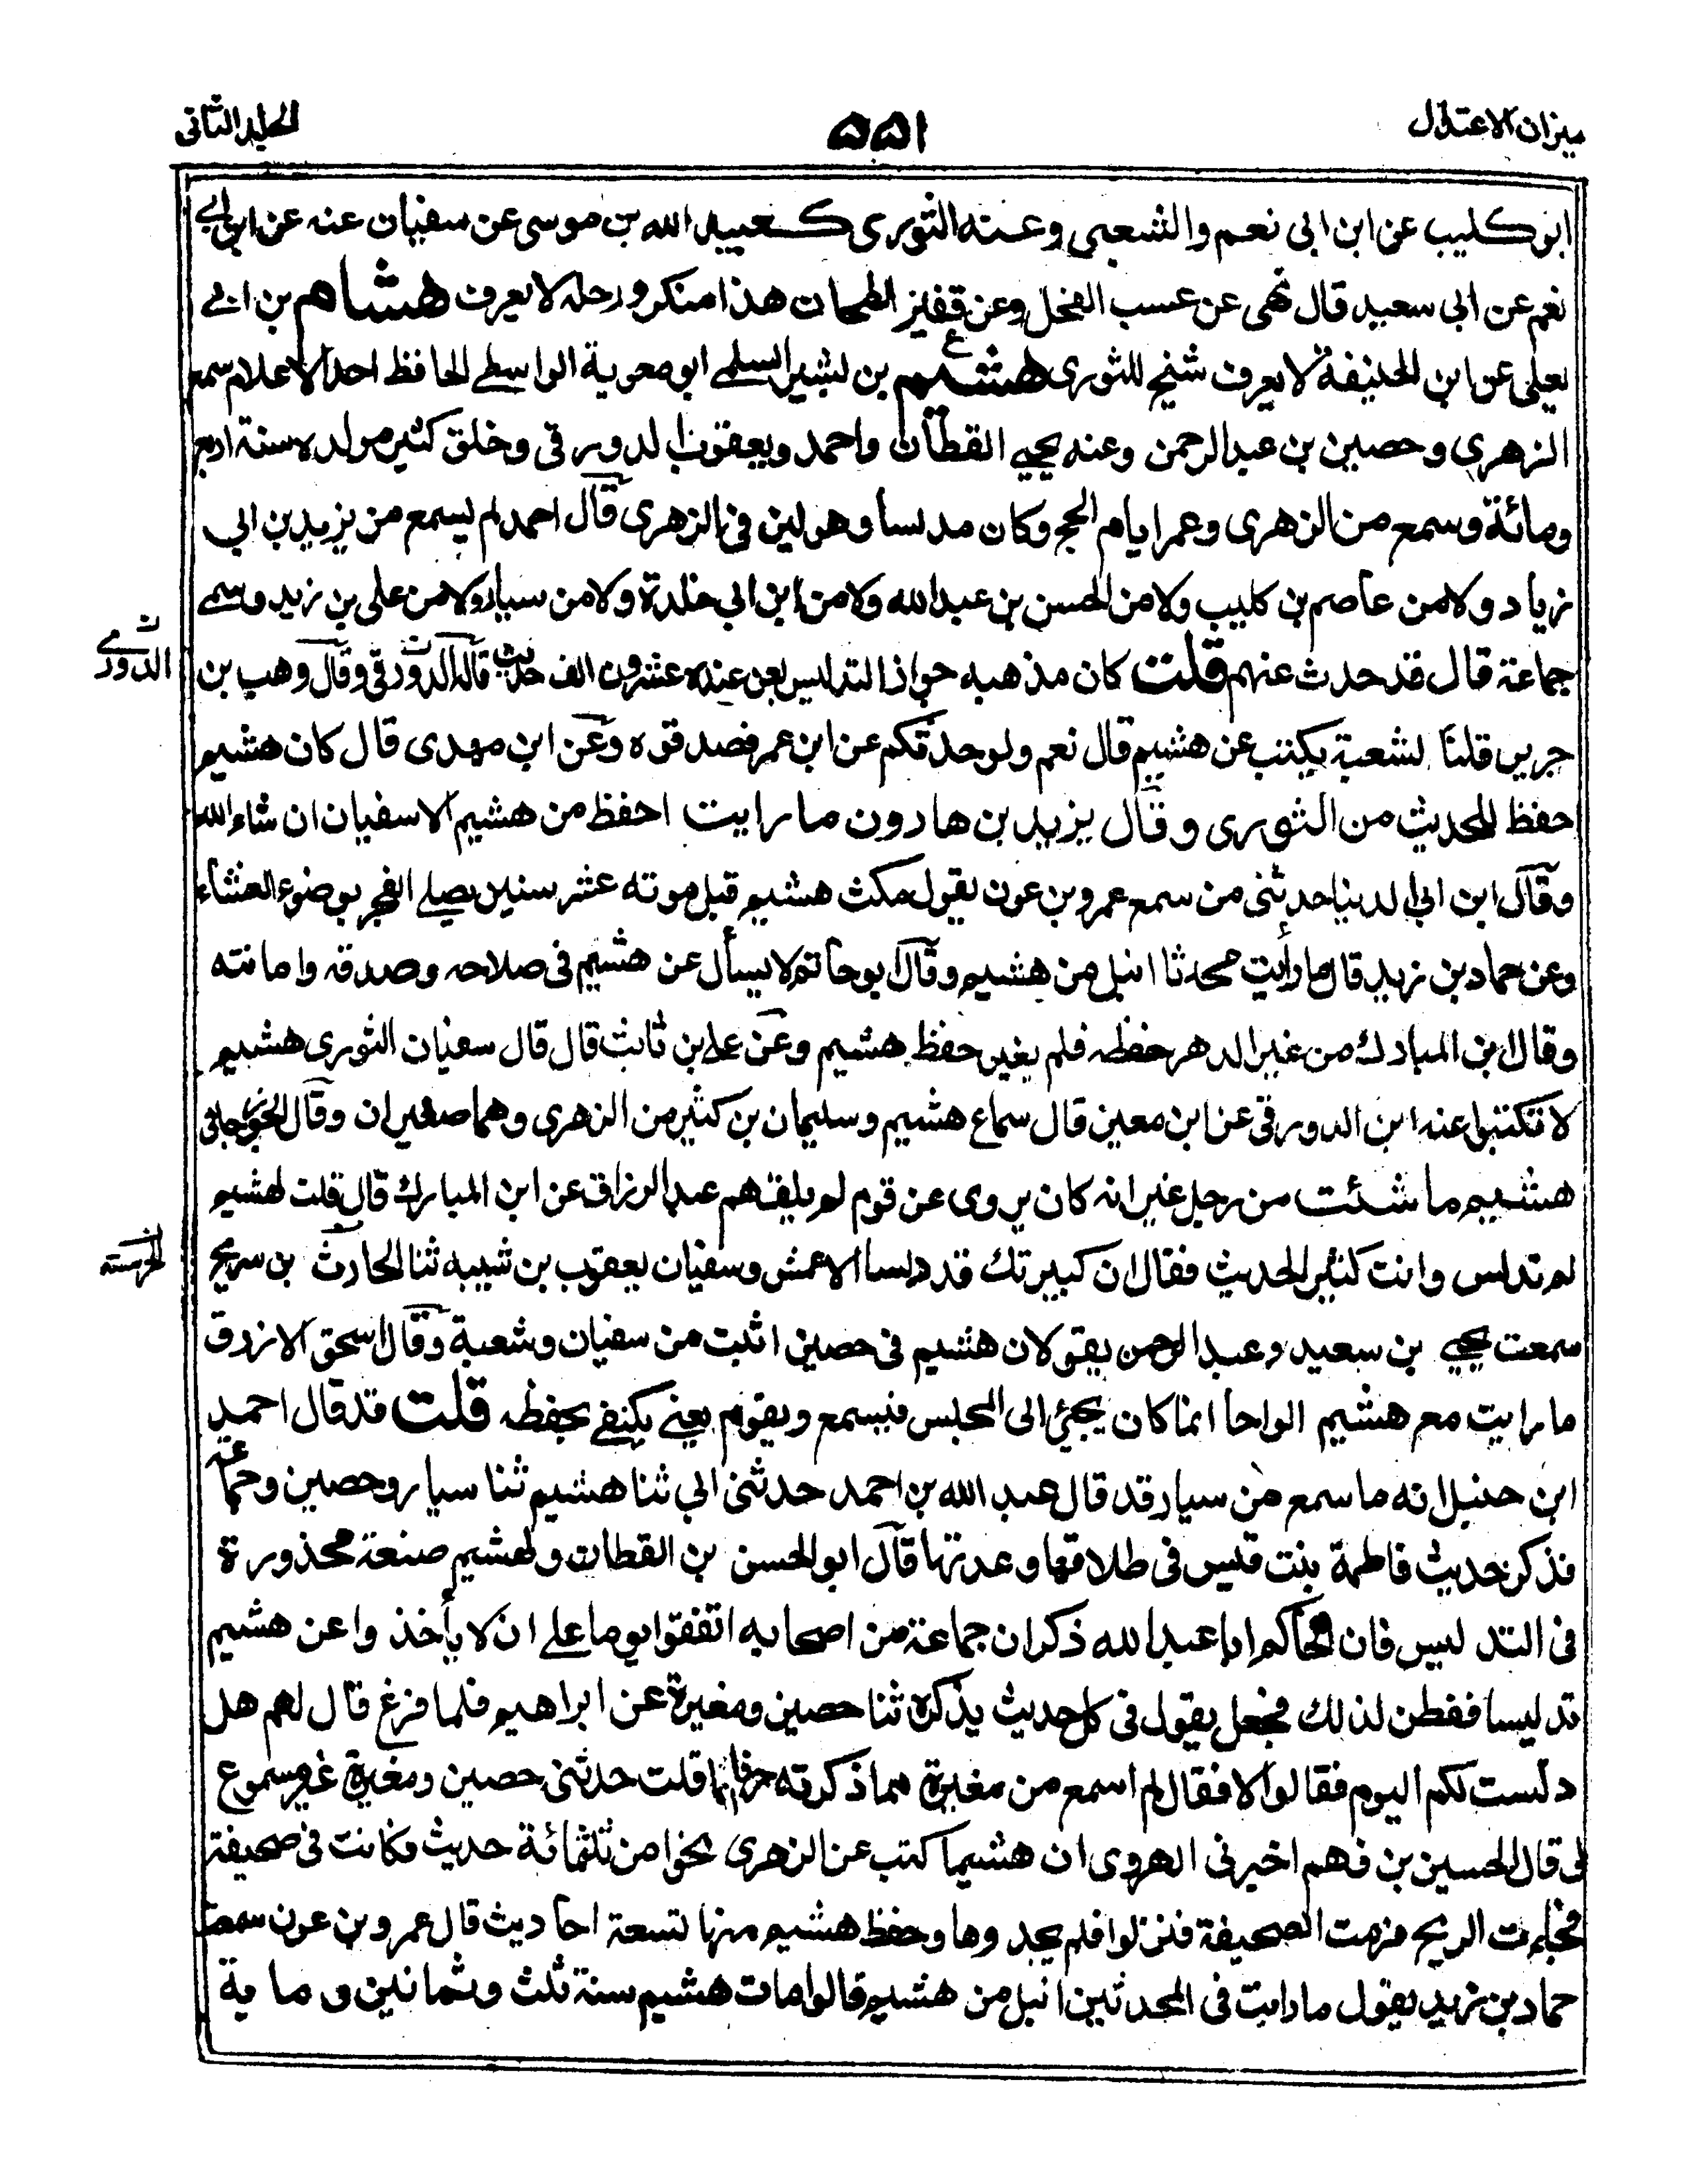 ميزان الاعتدال
٥٥١
الجلد الثانى
ابو كليب عن ابن ابى نعم والشعبى وعنه الثورى كعبيد الله بن موسى عن سفيان عنه عن ابن ابى
نعم عن ابى سعيد قال نهى عن عسب الفحل وعن قفيز الطحان هذا منكر ورجله لا يعرف هشام بن ابى
يعلى عن ابن الحنيفة لا يعرف شيخ للثورى هشيم ع بن بشير السلمى ابو معوية الواسطى الحافظ احد الاعلام سمع
الزهرى وحصين بن عبد الرحمن وعنه يحيى القطان واحمد ويعقوب الدورقى وخلق كثير مولده سنة اربع
ومائة وسمع من الزهرى وعمر ايام الحج وكان مدلسا وهو لين فى الزهرى قال احمد لم يسمع من يزيد بن ابى
زياد ولا من عاصم بن كليب ولا من الحسن بن عبد الله ولا من ابن ابى خلدة ولا من سيار ولا من على بن زيد وسمى
جماعة قال قد حدث عنهم قلت كان مذهبه جواز التدليس بعن عنده عشرون الف حديث قاله الدورقى وقال وهب بن
الدورى
جرير قلنا لشعبة يكتب عن هشيم قال نعم ولو حدثكم عن ابن عمر فصدقوه وعن ابن مهدى قال كان هشيم
احفظ للحديث من الثورى وقال يزيد بن هارون ما رايت احفظ من هشيم الا سفيان ان شاء الله
وقال ابن ابى الدنيا حدثنى من سمع عمرو بن عون يقول مكث هشيم قبل موته عشر سنين يصلى الفجر بوضوء العشاء
وعن حماد بن زيد قال ما رأيت محدثا انبل من هشيم وقال ابو حاتم لا يسأل عن هشيم فى صلاحه وصدقه وامانته
وقال ابن المبارك من غير الدهر حفظه فلم يغير حفظ هشيم وعن على بن ثابت قال قال سفيان الثورى هشيم
لا تكتبوا عنه ابن الدورقى عن ابن معين قال سماع هشيم وسليمان بن كثير من الزهرى وهما صغيران وقال الجوزجانى
هشيم ما شئت من رجل غير انه كان يروى عن قوم لم يلقهم عبد الرزاق عن ابن المبارك قال قلت لهشيم
لم تدلس وانت كثير الحديث فقال ان كبيرتك قد دلسا الاعمش وسفيان يعقوب بن شيبه ثنا الحارث بن سريج
سمعت يحيى بن سعيد وعبد الرحمن يقولان هشيم فى حصين اثبت من سفيان وشعبة وقال اسحق الازرق
ما رايت مع هشيم الواحا انما كان يجئ الى المجلس فيسمع ويقوم يعنى يكتفى بحفظه قلت قد قال احمد
ابن حنبل انه ما سمع من سيار قد قال عبد الله بن احمد حدثنى ابى ثنا هشيم ثنا سيار وحصين وجماعته
فذكر حديث فاطمة بنت قيس فى طلاقها وعدتها قال ابو الحسن بن القطان ولهشيم صنعة محذورة
فى التدليس فان الحاكم ابا عبد الله ذكر ان جماعة من اصحابه اتفقوا يوما على ان لا يأخذوا عن هشيم
تدليسا ففطن لذلك فجعل يقول فى كل حديث يذكره ثنا حصين ومغيرة عن ابراهيم فلما فرغ قال لهم هل
دلست لكم اليوم فقالوا لا فقال لم اسمع من مغيرة مما ذكرته حرفا انما قلت حدثنى حصين ومغيرة غير مسموع
لى قال الحسين بن فهم اخبرنى الهروى ان هشيما كتب عن الزهرى نحوا من ثلثمائة حديث فكانت فى صحيفة
فجاءت الريح فرمت الصحيفة فنزلوا فلم يجدوها وحفظ هشيم منها تسعة احاديث قال عمرو بن عون سمعت
حماد بن زيد يقول ما رايت فى المحدثين انبل من هشيم قالوا مات هشيم سنة ثلث وثمانين وماية